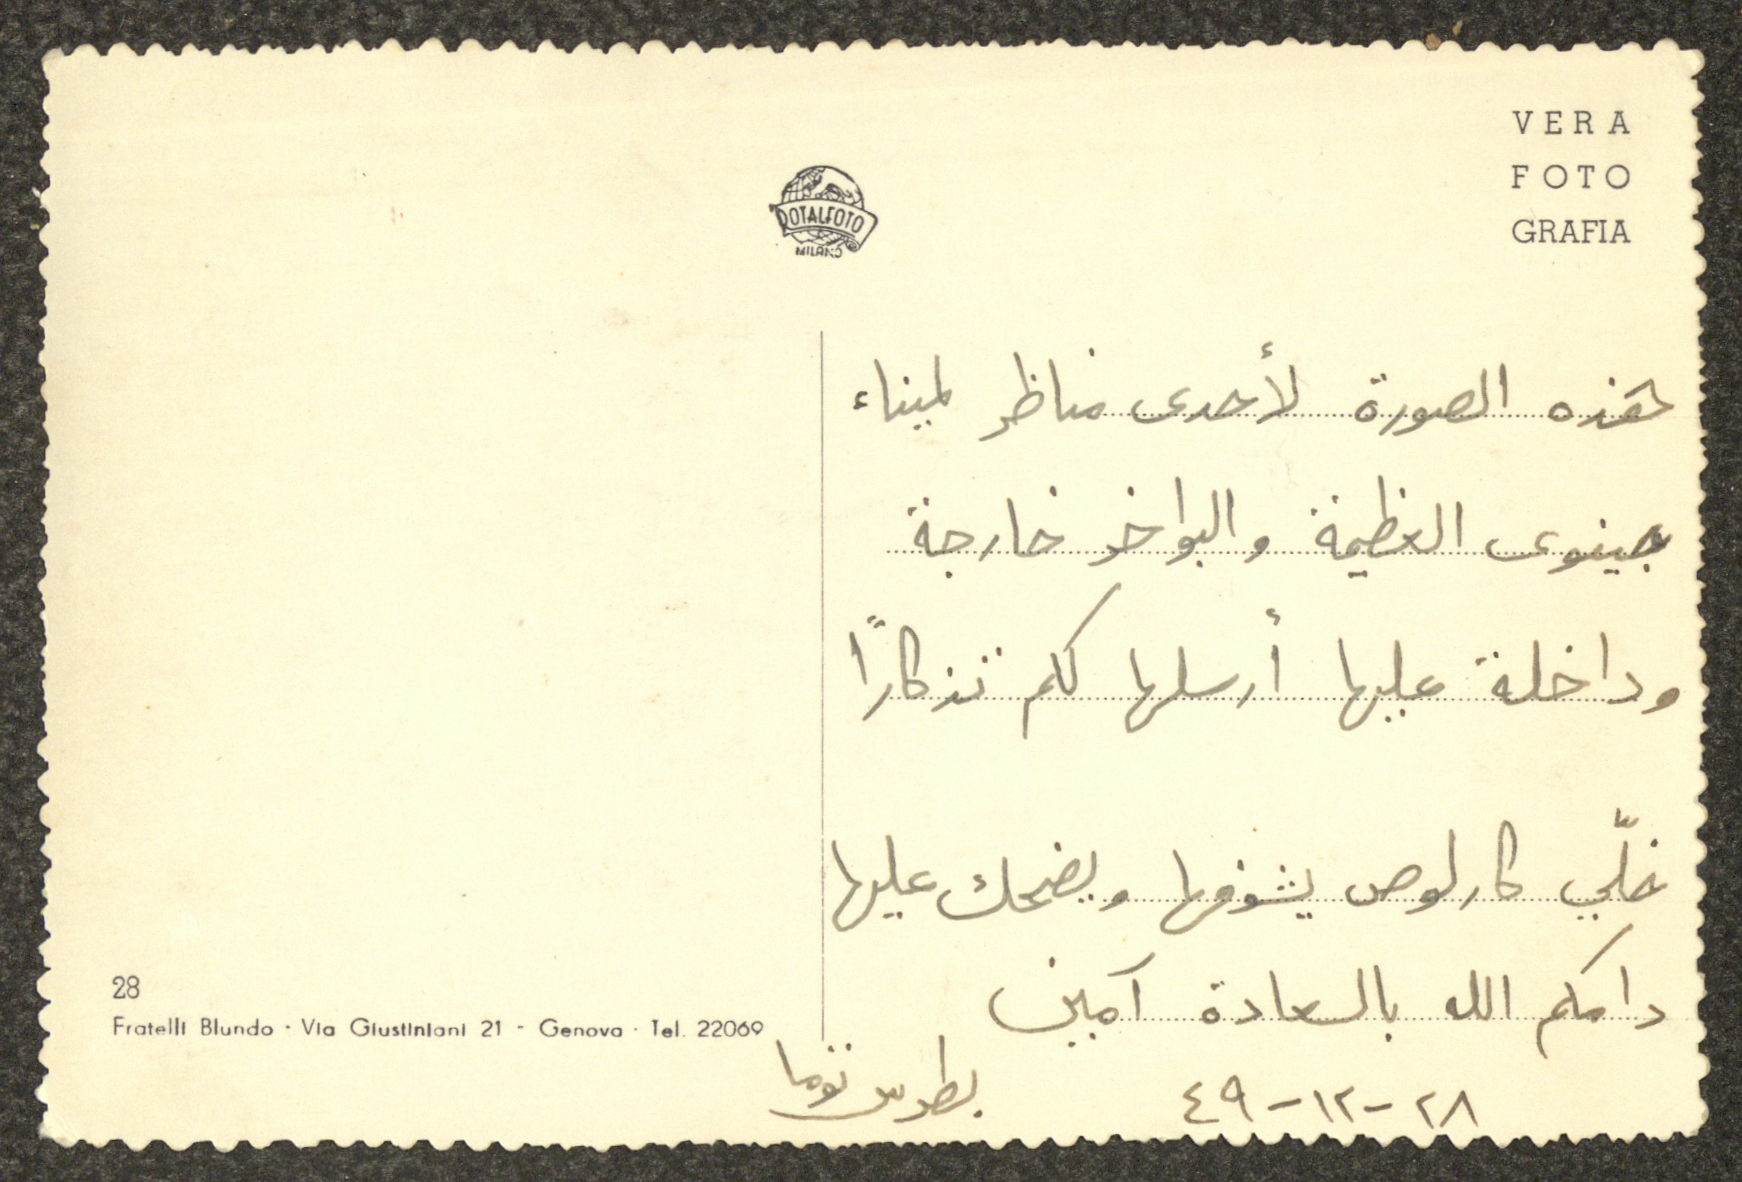 VERA
FOTO
GRAFIA
ROTALFOTO
MILANO
هذه الصورة لأحدى مناظر لميناء
جينوى العظيمة والبواخر خارجة
وداخلة عليها أرسلها لكم تذكارًا
خلّي كارلوص يشوفها ويضحك عليها
دامكم الله بالسعادة آمين
بطرس توما
٢٨-١٢-٤٩
28
Fratelli Blundo - Via Giustiniani 21 - Genova - Tel. 22069